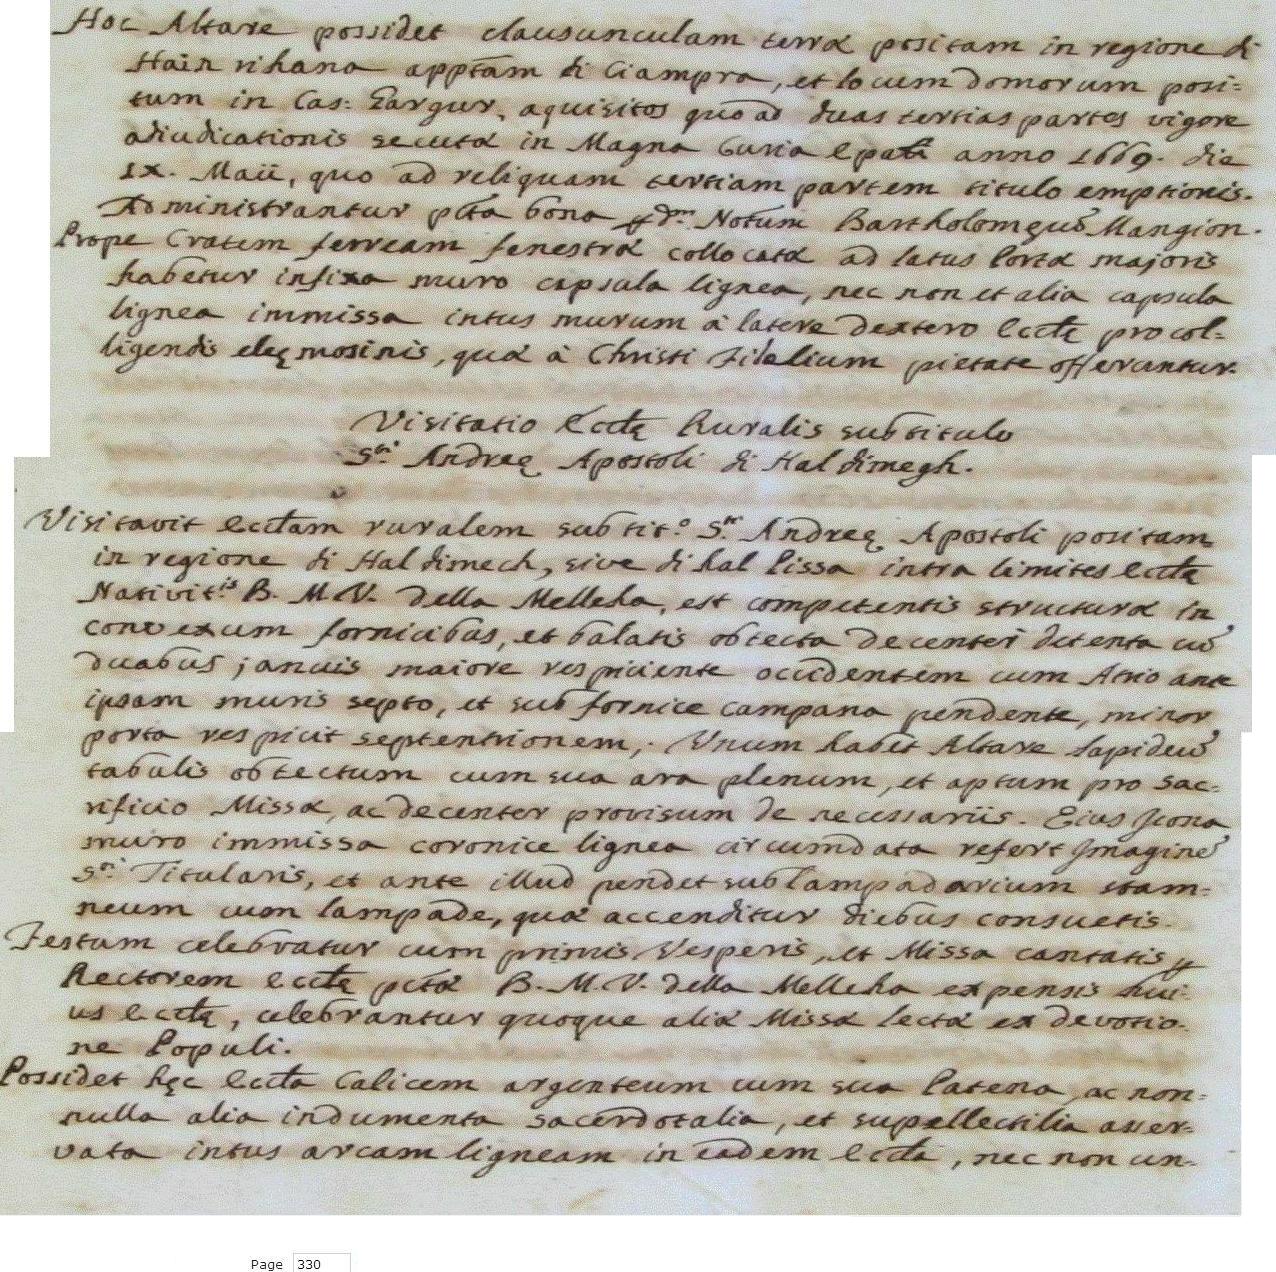 Hoc Altare possidet clausunculam terræ positam in regione di
Hain rihana apptãm di Ciampra, et locum domorum posi=
tum in Cas: Zargur, aquisitos quo ad duas tertias partes vigore
adiudicationis secutæ in Magna Curia Epali anno 1669. die
IX. Maii, quo ad reliquam tertiam partem titulo emptionis.
Administrantur pcta bona p Dm. Notum Bartholomęũ Mangion.
Prope Cratem ferream fenestræ collocatæ ad latus Portæ majoris
habetur infixa muro capsula lignea, nec non et alia capsula
lignea immissa intus murum à latere dextero Ecclę pro col-
ligendis elęmosinis, quæ à Christi Fidelium pietate offeruntur.
Visitatio Ecclę Ruralis sub titulo
Sti. Andreę Apostoli di Hal dimegh.
Visitavit Ecclam ruralem sub tit.o Sti. Andreę Apostoli positam
in regione di Hal dimech, sive di hal Pissa intra limites Ecclę
Nativit.is B. M. V. della Melleha, est competentis structuræ in
convexum fornicibus, et balatis obtecta decenter detenta cũ
duabus januis maiore respiciente occidentem cum Atrio ante
ipsam muris septo, et sub fornice campana pendente, minor
porta respicit septentrionem,. Unum habet Altare lapideũ
tabulis obtectum cum sua ara plenum, et aptum pro sac=
rificio Missæ, ac decenter provisum de necessariis. Eius Icona
muro immissa coronice lignea circumdata refert Imaginẽ
Sti. Titularis, et ante illud pendet sub lampadarium stam=
neum cum lampade, quæ accenditur diebus consuetis.
Festum celebratur cum primis Vesperis, et Missa cantatis p
Rectorem Ecclę pctæ B. M. V. della Melleha expensis hui=
us Ecclę, celebrantur quoque aliæ Missæ lectæ ex devotio-
ne Populi.
Possidet hęc Eccla Calicem argenteum cum sua Patena, ac non=
nulla alia indumenta sacerdotalia, et supellectilia asser-
vata intus arcam ligneam in eadem Eccla, nec non un-
Page 330